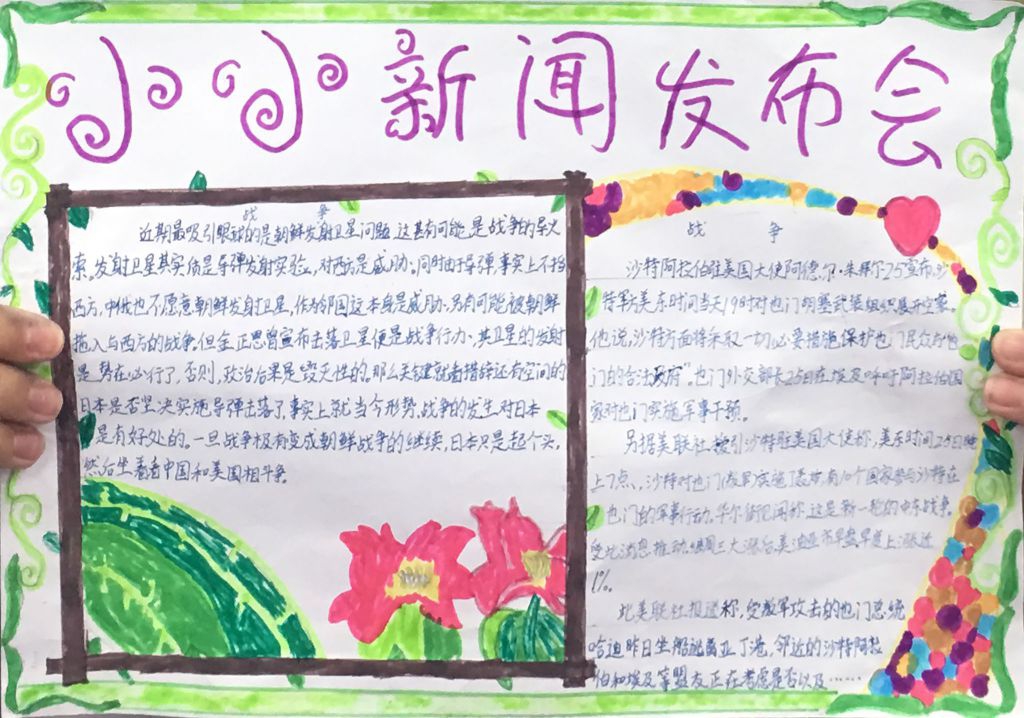 小小新闻发布会
战争
近期最吸引眼球的是朝鲜发射卫星问题,这甚有可能是战争的导火
索。发射卫星其实质是导弹发射实验,对西方是威胁,同时由于导弹,事实上不挡
西方,中俄也不愿意朝鲜发射卫星,作为邻国这本身是威胁,另有可能被朝鲜
拖入与西方的战争。但金正恩曾宣布击落卫星便是战争行为,其卫星的发射
是势在必行了,否则,政治后果是毁灭性的。那么关键就看措辞还有空间的
日本是否坚决实施导弹击落了,事实上就当今形势,战争的发生对日本
是有好处的。一旦战争极有变成朝鲜战争的继续,日本只是起个头,
然后坐着看中国和美国相斗争。
战争
沙特阿拉伯驻美国大使阿德尔·朱拜尔25宣布,沙
特军队美东时间当天19时对也门胡塞武装组织展开空袭。
他说,沙特方面将采取一切必要措施保护也门民众和“也
门的合法政府”。也门外交部长25日在埃及呼吁阿拉伯国
家对也门实施军事干预。
另据美联社援引沙特驻美国大使称,美东时间25日晚
上7点,沙特对也门(叛军)实施了轰炸,有10个国家参与沙特在
也门的军事行动。华尔街见闻称,这是新一轮的中东战争。
受此消息推动,继周三大涨后,美油亚市早盘早段上涨近
1%。
此美联社报道称,受叛军攻击的也门总统
哈迪昨日坐船逃离亚丁港,邻近的沙特阿拉
伯和埃及等盟友正在考虑是否以及……